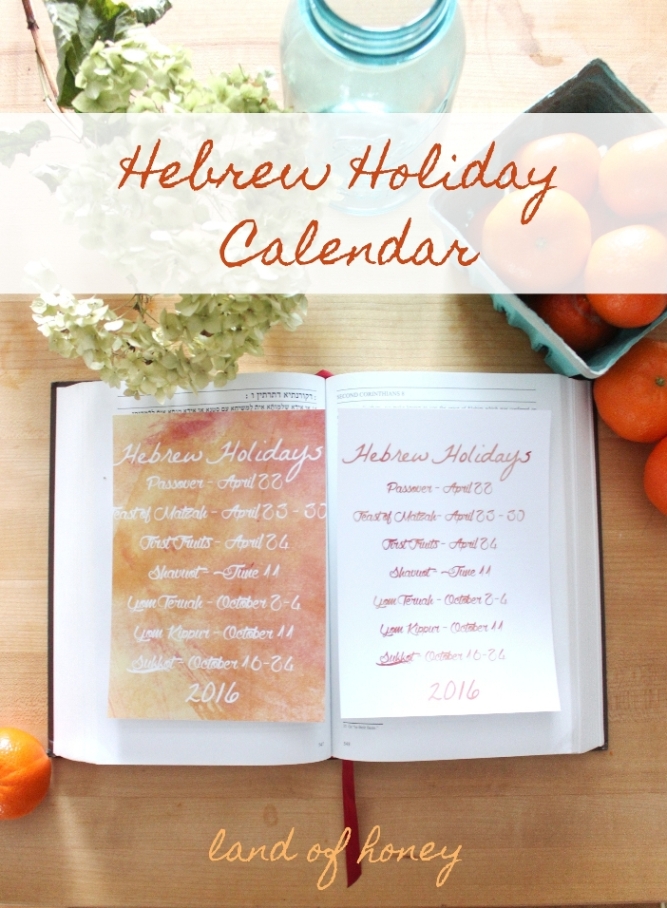 Hebrew Holiday
Calendar
לקורנתיא דתרתין
Hebrew Holidays
Passover - April 22
Feast of Matzah - April 23 - 30
First Fruits - April 24
Shavuot - June 11
Yom Teruah - October 2-4
Yom Kippur - October 11
Sukkot - October 16-24
2016
SECOND CORINTHIANS
Hebrew Holidays
Passover - April 22
Feast of Matzah - April 23 - 30
First Fruits - April 24
Shavuot - June 11
Yom Teruah - October 2-4
Yom Kippur - October 11
Sukkot - October 16-24
2016
land of honey